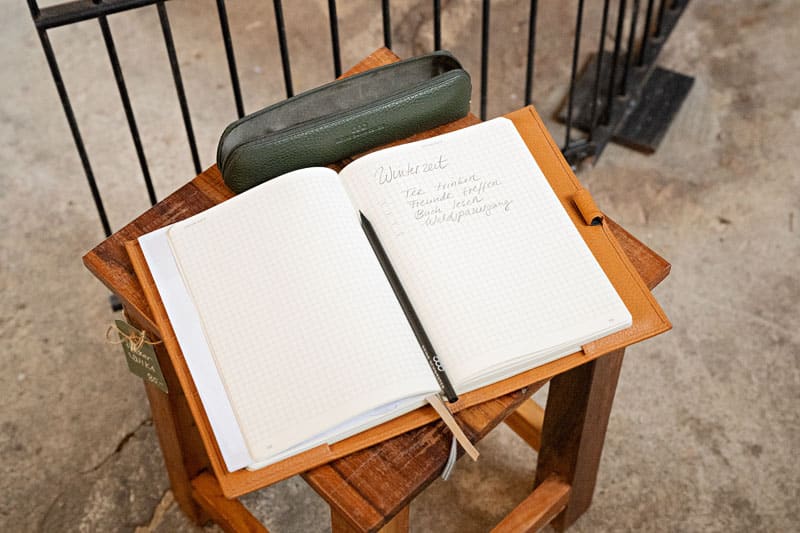 Winterzeit
Tee trinken
Freunde treffen
Buch lesen
Waldspaziergang
LANKA